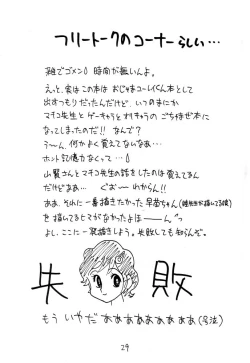 フリートークのコーナーらしい…
雑でゴメン 時間が無いんよ。
えっと、実はこの本は おじゃまユーレイくん本として
出すつもりだったんだけど、いつのまにか
マチコ先生と
なってしまったのだ!! なんで?
う〜ん、何かよく覚えてないなあ…
ホント記憶力なくって…
山賢さんとマチコ先生の話をしたのは覚えてるん
だけどまあ… ぐお〜 わからん!!
ああ、それに一番描きたかった早苗ちゃん
を描いてるヒマがなかったよほーーん
よし、ここに一発描きしよう。失敗しても知らんぞ。
失 敗
もう いやだ あああああああああ(号泣)
29